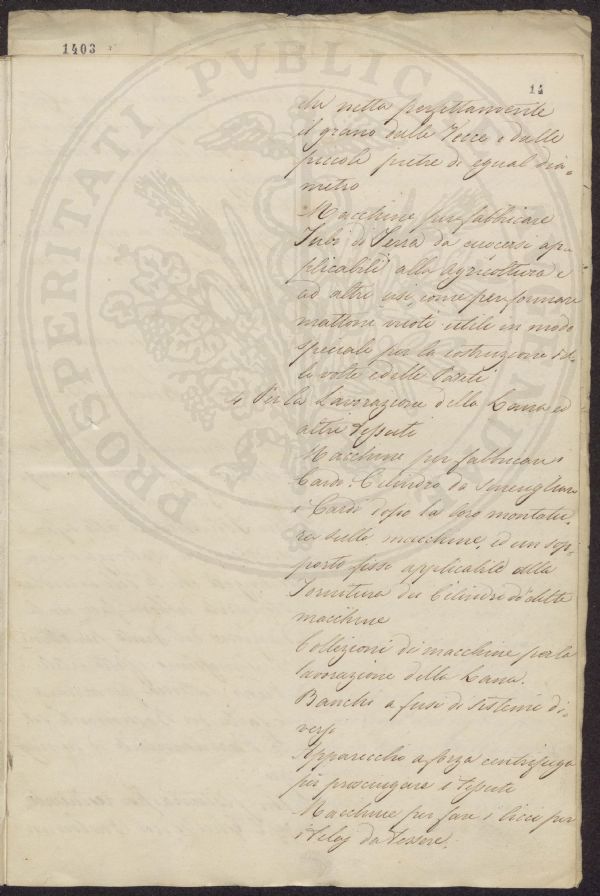 1403
14
che netta perfettamente
il grano dalle Vecce e dalle
piccole pietre di egual dia=
metro
Macchine per fabbricare
Tubi di Terra da cuocersi ap=
plicabili alla Agricoltura e
ad altri usi, come per formare
mattoni vuoti utili in modo
speciale per la costruzione del=
le volte e delle Pareti
4 Per la Lavorazione della Lana ed
altri tessuti
Macchine per fabbricare i
Cardi. Cilindro da Smerigliare
i Cardi dopo la loro montatu=
ra sulle macchine, ed un sop=
porto fisso applicabile alla
Tornitura dei Cilindri di dette
macchine
Collezioni di macchine per la
lavorazione della Lana.
Banchi a fusi di sistemi di=
versi
Apparecchio a forza centrifuga
per prosciugare i tessuti
Macchine per fare i licci per
i telaj da tessere.
PROSPERITATI PUBLICAE AUGENDAE